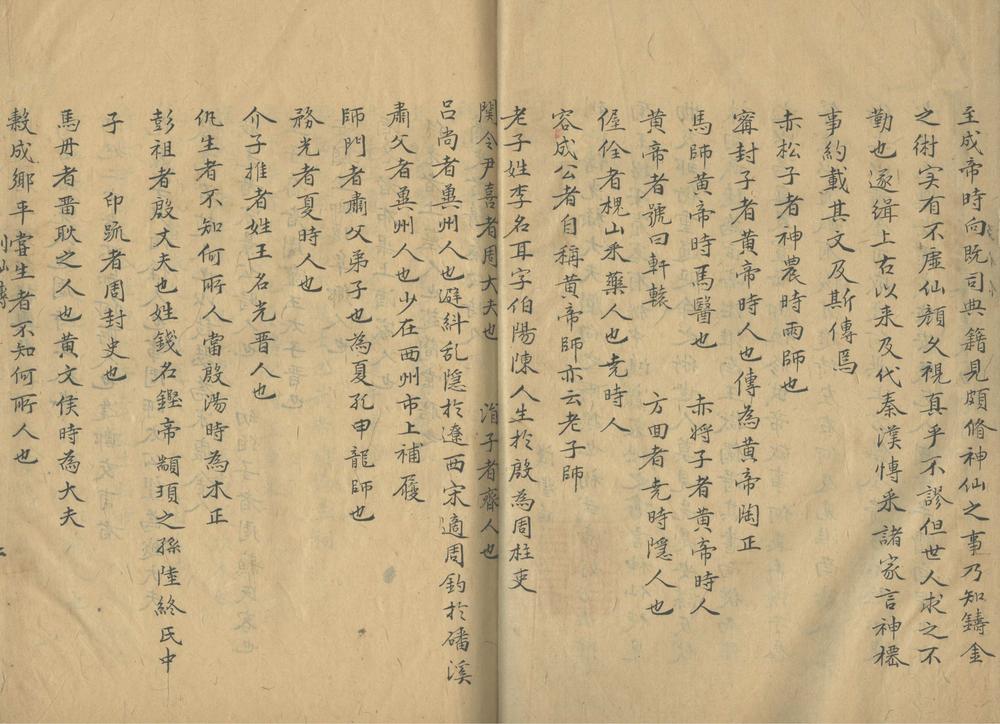 至成帝時向既司典籍見頗脩神仙之事乃知鑄金
之術実有不虚仙顔久視真乎不謬但世人求之不
勤也遂緝上古以来及代秦漢愽采諸家言神櫏
事約載其文及斯傳焉
赤松子者神農時雨師也
甯封子者黄帝時人也傳為黄帝陶正
馬師黄帝時馬醫也　赤将子者黄帝時人
黄帝者號曰軒轅　方回者尭時隠人也
偓佺者槐山釆藥人也尭時人
容成公者自稱黄帝師亦云老子師
老子姓李名耳字伯陽陳人生於殷為周柱吏
関令尹喜者周大夫也　涓子者齊人也
吕尚者兾州人也避紂乱隠於遼西宋適周釣於磻溪
肅父者兾州人也少在西州市上補履
師門者肅父弟子也為夏孔甲龍師也
務光者夏時人也
介子推者姓王名光晋人也
仇生者不知何所人當殷湯時為木正
彭祖者殷大夫也姓錢名鏗帝顓頊之孫陸終氏中
子　卭䟽者周封史也
馬丹者晋耿之人也黄文侯時為大夫
穀成郷平常生者不知何所人也
列仙傳
二